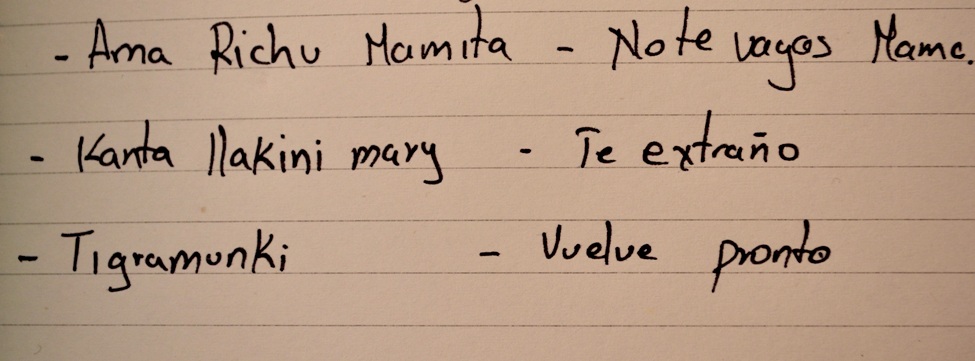 - Ama Richu Mamita - No te vayas Mama.
- Kanta llakini mary - Te extraño
- Tigramunki - Vuelve pronto